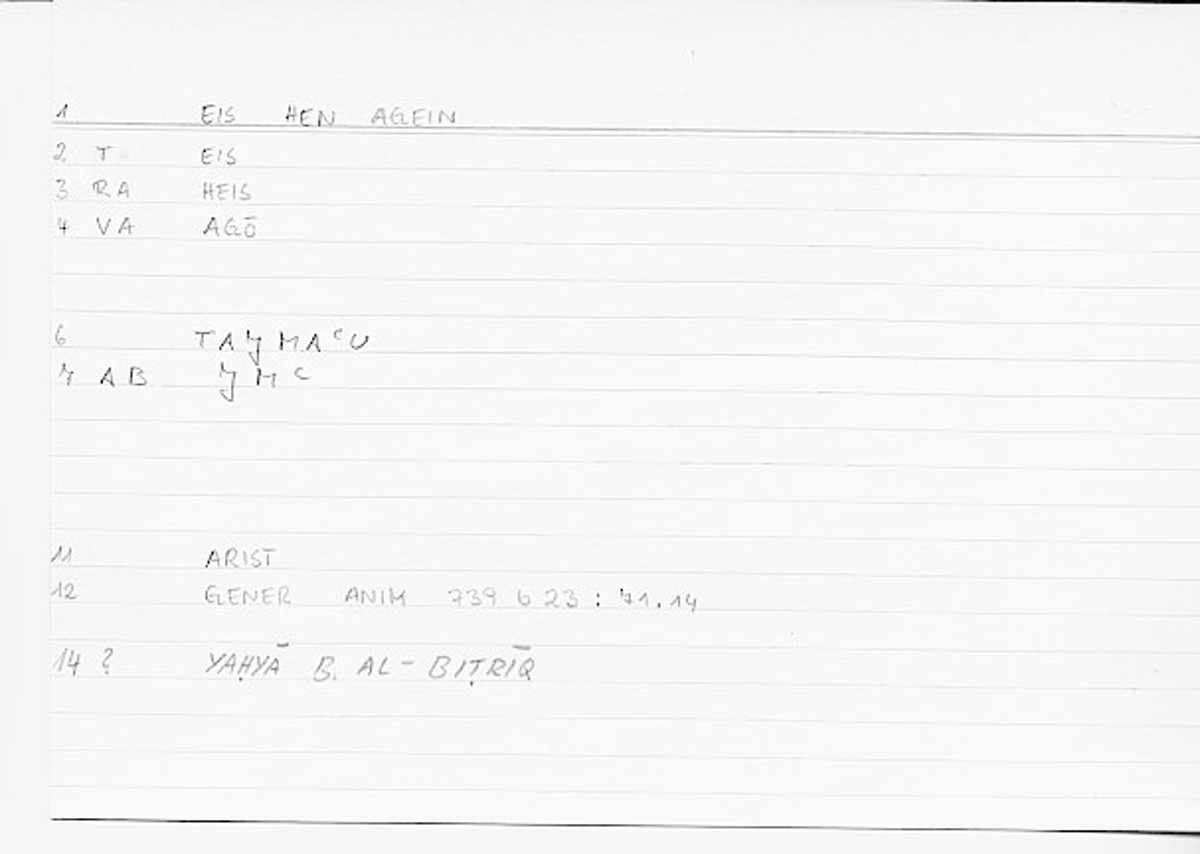 1 EIS HEN AGEIN
2 T EIS
3 RA HEIS
4 VA AGŌ
6 TAJMAᶜU
7 AB JMᶜ
11 ARIST
12 GENER ANIM 739 b 23 : 71.14
14 ? YAḤYĀ B. AL-BIṬRĪQ